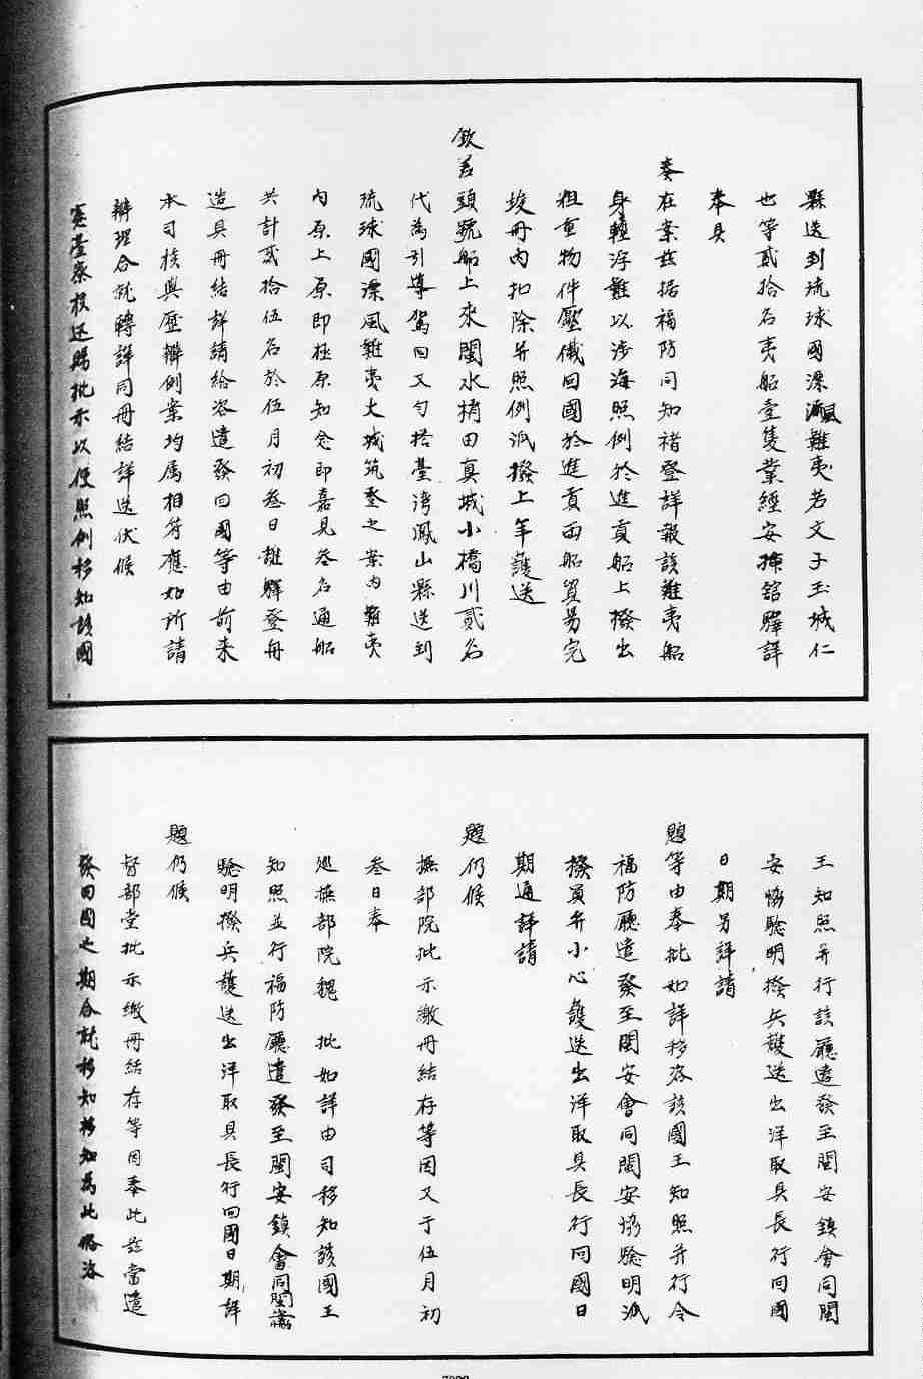 縣送到琉球國漂風難夷若文子玉城仁
也等貳拾名夷船壹隻業經安揷舘驛詳
奉具
奏在案玆据福防同知禇登詳報該難夷船
身輕浮難以渉海照例於進貢船上撥出
粗重物件壓儎回國於進貢両船貿昜完
竣冊内扣除并照例派撥上年護送
欽差頭號船上來閩水梢田真城小橋川貳名
代為引導駕回又勻搭臺湾鳳山縣送到
琉球國漂風難夷大城筑登之案内難夷
内原上原即極原知念即嘉見叁名通船
共計貳拾伍名於伍月初叁日離驛登舟
造具冊結詳請給咨遣發回國等由前來
本司核與歷辦例案均属相符應如所請
辦理合就轉詳同冊結詳送伏候
憲臺察核迅賜批示以便照例移知該國
王知照并行該廳遣發至閩安鎮會同閩
安協騐明撥兵護送出洋取具長行回國
日期另詳請
題等由奉批如詳移咨該國王知照并行令
福防廳遣發至閩安會同閩安協騐明派
撥員弁小心護送出洋取具長行回國日
期通詳請
題仍候
撫部院批示繳冊結存等因又于伍月初
叁日奉
廵撫部院魏 批如詳由司移知該國王
知照並行福防廳遣發至閩安鎮會同閩安協
騐明撥兵護送出洋取具長行回國日期詳
題仍候
督部堂批示繳冊結存等因奉此玆當遣
發回國之期合就移知移知為此俻咨